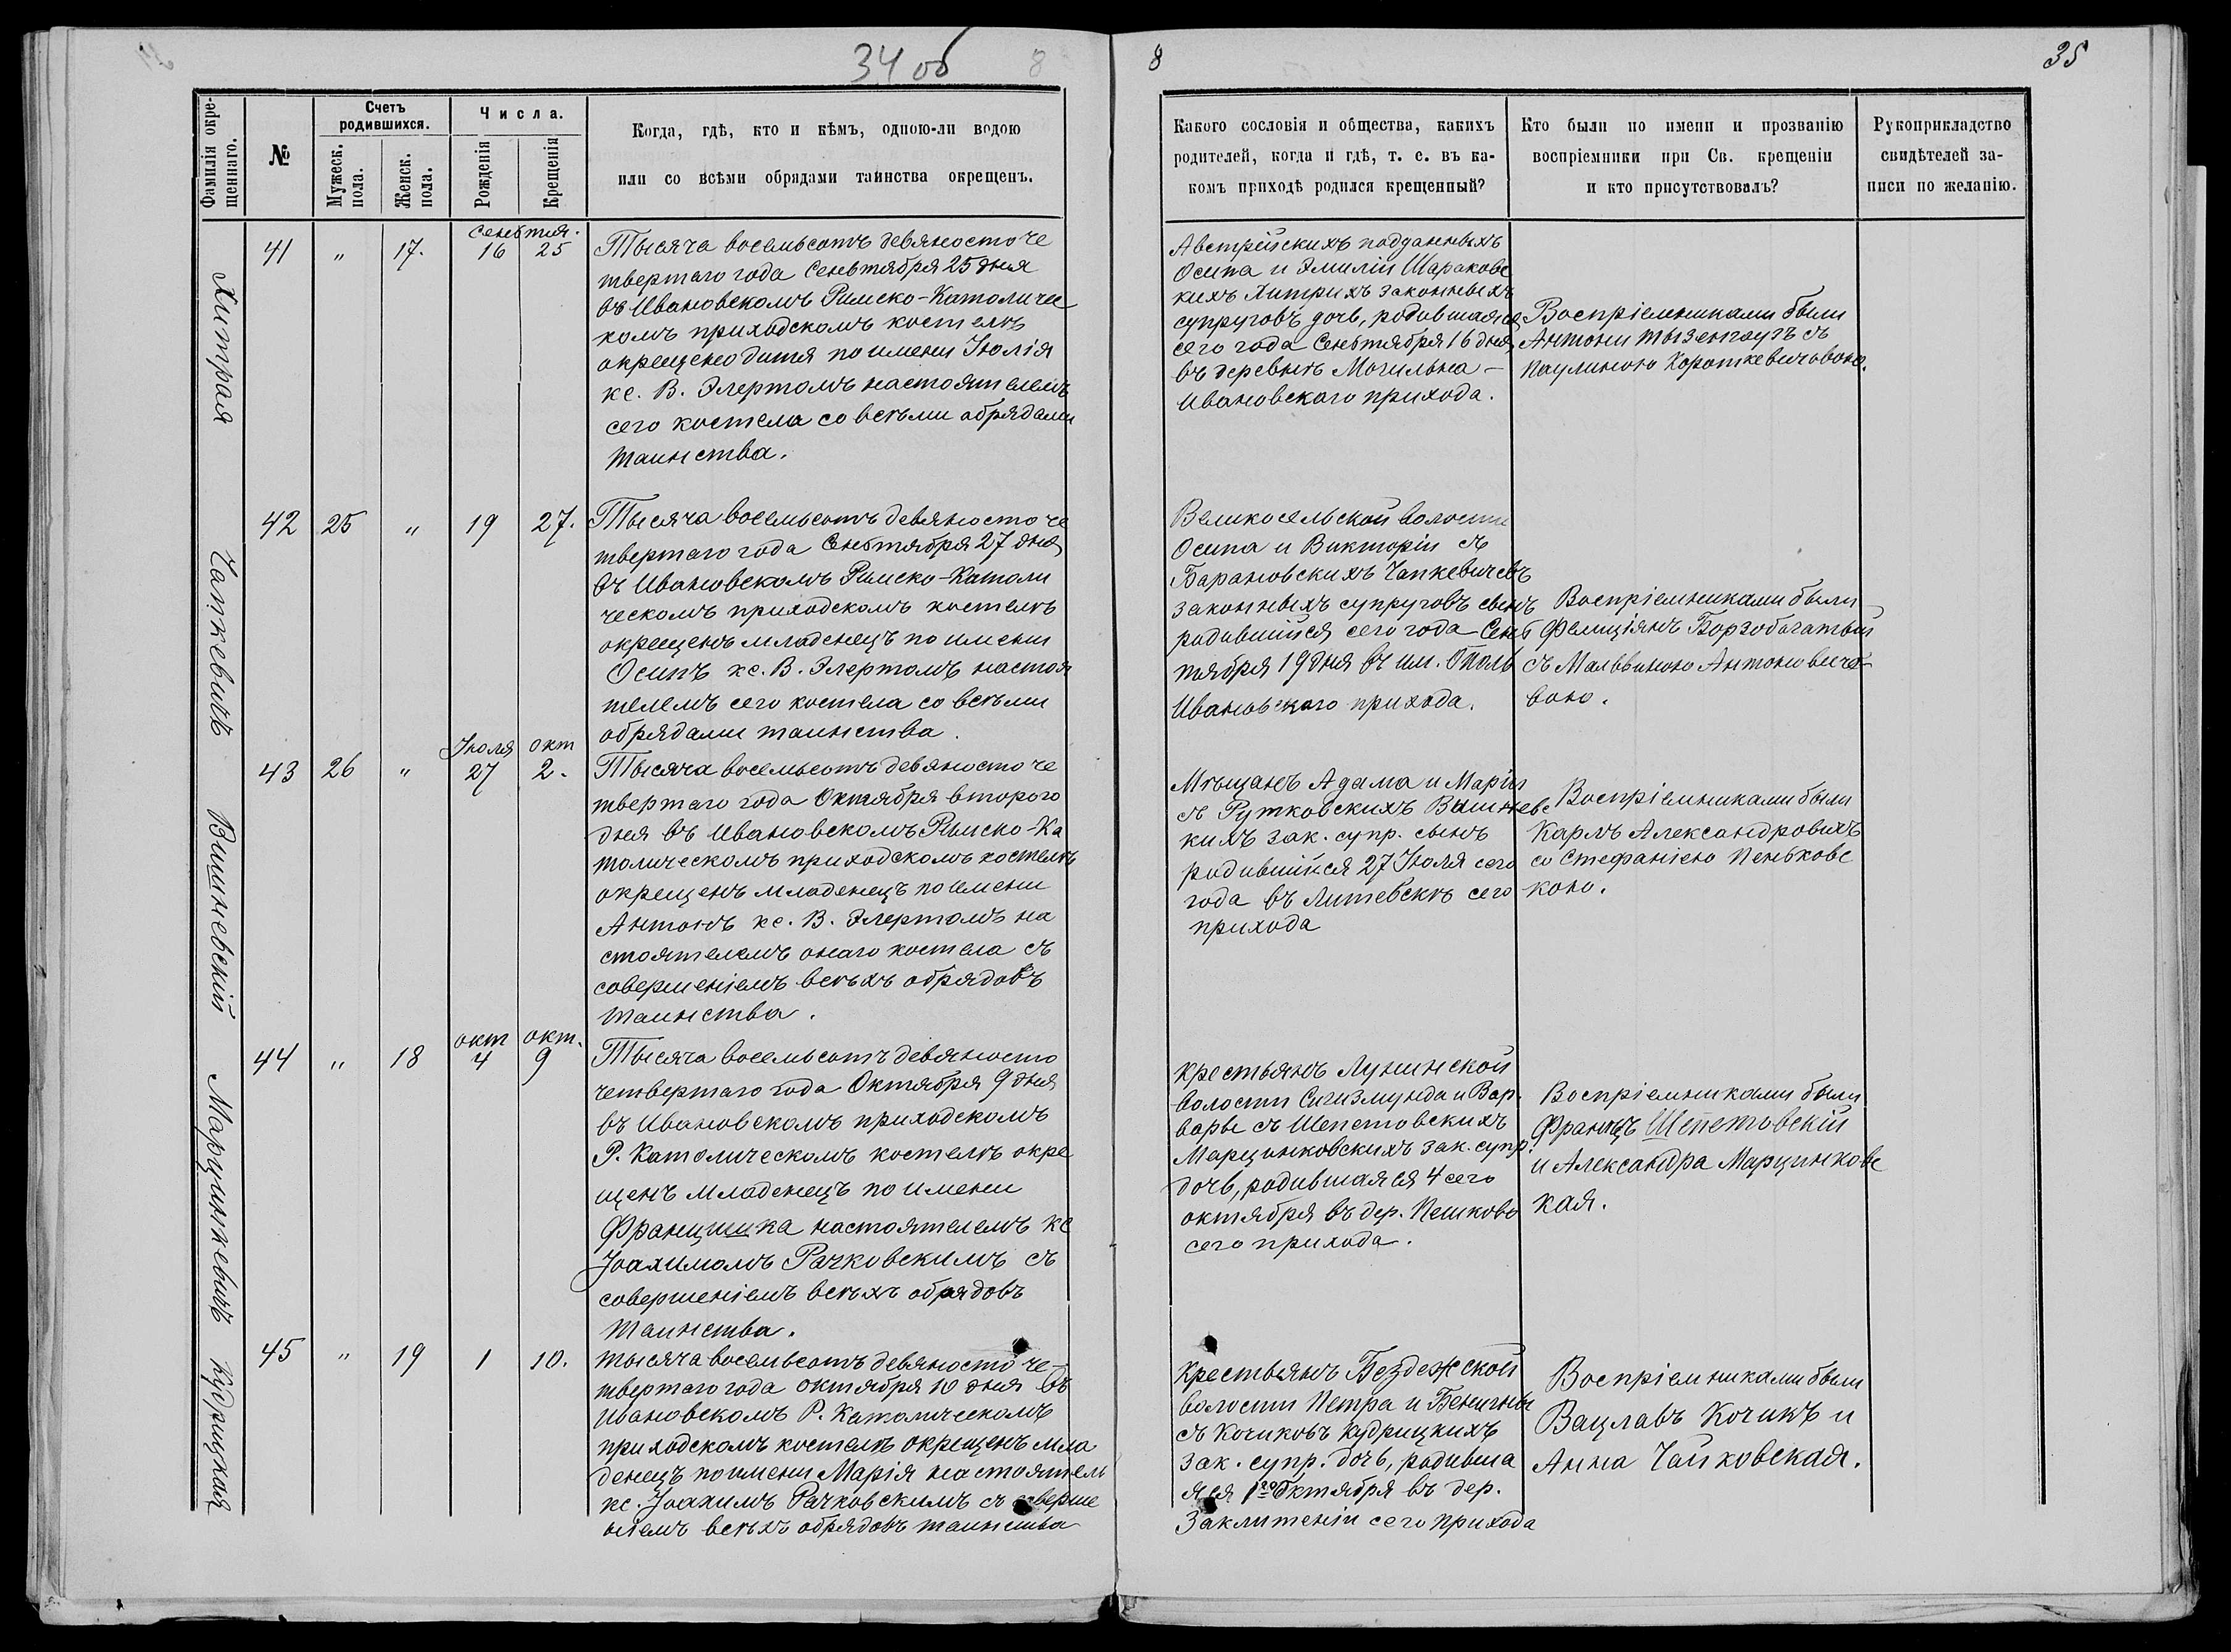 34 об
8
8
35
Фамилія окре-
щеннаго.
№
Счетъ
родившихся.
Мужеск.
пола.
Женск.
пола.
Числа.
Рожденія
Крещенія
Когда, гдѣ, кто и кѣмъ, одною-ли водою
или со всѣми обрядами таинства окрещенъ.
Какого сословія и общества, какихъ
родителей, когда и гдѣ, т. е. въ ка-
комъ приходѣ родился крещенный?
Кто были по имени и прозванію
воспріемники при Св. крещеніи
и кто присутствовалъ?
Рукоприкладство
свидѣтелей за-
писи по желанію.
Хитрая
41 " 17.
16 25
Тысяча восемьсотъ девяносто че
твертаго года Сентября 25 дня
въ Ивановскомъ Римско-Католичес
комъ приходскомъ костелѣ
окрещено дитя по имени Юлія
кс. В. Элертомъ настоятелемъ
сего костела со всѣми обрядами
таинства.
Австрійскихъ подданныхъ
Осипа и Эмиліи Шараковс
кихъ Хитрихъ законныхъ
супруговъ дочь, родившаяся
сего года Сентября 16 дня
въ деревнѣ Могильна -
Ивановскаго прихода.
Воспріемниками были
Антони Тызенгаузъ съ
Паулиною Короткевичовою.
Чапкевичъ
42 25 " 19 27.
Тысяча восемьсотъ девяносто че
твертаго года Сентября 27 дня
въ Ивановскомъ Римско-Католи
ческомъ приходскомъ костелѣ
окрещенъ младенецъ по имени
Осипъ кс. В. Элертомъ настоя
телемъ сего костела со всѣми
обрядами таинства.
Великосельской волости
Осипа и Викторіи съ
Барановскихъ Чапкевичевъ
законныхъ супруговъ сынъ
родившійся сего года Сен
тября 19 дня въ им. Ополь
Ивановскаго прихода.
Воспріемниками были
Фелиціянъ Борзобогатый
съ Мальвиною Антонович-
вою.
Вишневскій
43 26 "
Іюля
27
окт
2.
Тысяча восемьсотъ девяносто че
твертаго года Октября второго
дня въ Ивановскомъ Римско-Ка
толическомъ приходскомъ костелѣ
окрещенъ младенецъ по имени
Антонъ кс. В. Элертомъ на
стоятелемъ онаго костела съ
совершеніемъ всѣхъ обрядовъ
таинства.
Мѣщанъ Адама и Маріи
съ Рутковскихъ Вишневс
кихъ зак. супр. сынъ
родившійся 27 Іюля сего
года въ Литевскѣ сего
прихода
Воспріемниками были
Карлъ Александровичъ
со Стефаніею Пеньковс
кою.
Марцинкевичъ
44 " 18
окт
4
окт.
9
Тысяча восемьсотъ девяносто
четвертаго года Октября 9 дня
въ Ивановскомъ приходскомъ
Р. Католическомъ костелѣ окре
щенъ младенецъ по имени
Францишка настоятелемъ кс
Іоахимомъ Рачковскимъ съ
совершеніемъ всѣхъ обрядовъ
таинства.
Крестьянъ Лунинской
волости Сигизмунда и Вар
вары съ Шепетовскихъ
Марцинковскихъ зак. супр.
дочь, родившаяся 4 сего
октября въ дер. Пешково
сего прихода.
Воспріемниками были
Францъ Шепетовскій
и Александра Марцинковс
кая.
Кудрицкая
45 " 19 1 10.
тысяча восемьсотъ девяносто че-
твертаго года октября 10 дня въ
Ивановскомъ Р. Католическомъ
приходскомъ костелѣ окрещенъ мла
денецъ по имени Марія настоятель
кс. Іоахимъ Рачковскимъ съ соверше
ніемъ всѣхъ обрядовъ таинства
Крестьянъ Бездежской
волости Петра и Бенигны
съ Кочиковъ Кудрицкихъ
зак. супр. дочь, родивша
яся 1го Октября въ дер.
Заклитеніи сего прихода
Воспріемниками были
Вацлавъ Кочикъ и
Анна Чайковская.